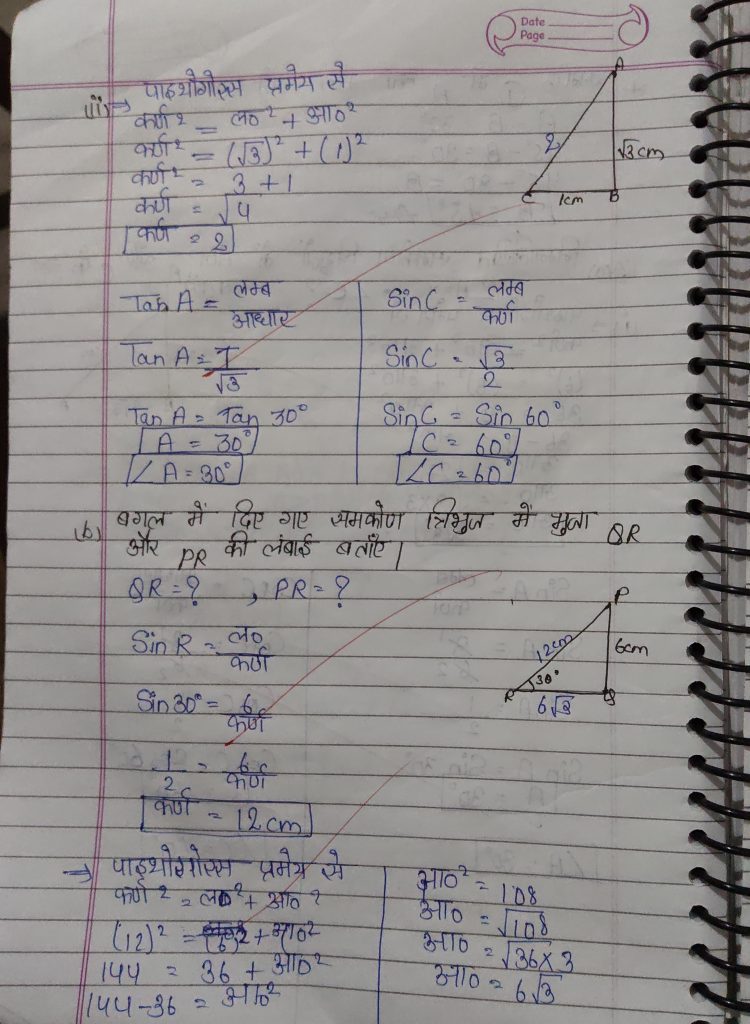 Date
Page
(ii) → पाइथोगोरस प्रमेय से
कर्ण² = ल०² + आ०²
कर्ण² = (√3)² + (1)²
कर्ण² = 3 + 1
कर्ण = √4
कर्ण = 2
A
2
√3cm
C
1cm
B
Tan A = लम्ब/आधार
Tan A = 1/√3
Tan A = Tan 30°
A = 30°
∠A = 30°
Sin C = लम्ब/कर्ण
Sin C = √3/2
Sin C = Sin 60°
C = 60°
∠C = 60°
(b) बगल में दिए गए समकोण त्रिभुज में भुजा QR
और PR की लंबाई बताएँ।
QR = ? , PR = ?
Sin R = ल०/कर्ण
Sin 30° = 6/कर्ण
1/2 = 6/कर्ण
कर्ण = 12cm
P
12cm
6cm
30°
R
Q
6√3
→ पाइथोगोरस प्रमेय से
कर्ण² = ल०² + आ०²
(12)² = (6)² + आ०²
144 = 36 + आ०²
144-36 = आ०²
आ०² = 108
आ० = √108
आ० = √36×3
आ० = 6√3